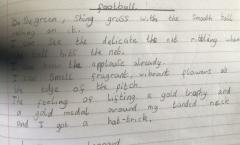 football
green, shiny grass with the smooth ball
rolling on it.
I can see the delicate net rippling when
hits the net.
I hear the applause already.
I can smell fragrant, vibrant flowers at
the edge of the pitch.
The feeling of lifting a gold trophy and
a gold medal around my neck
And I got a hat-trick.